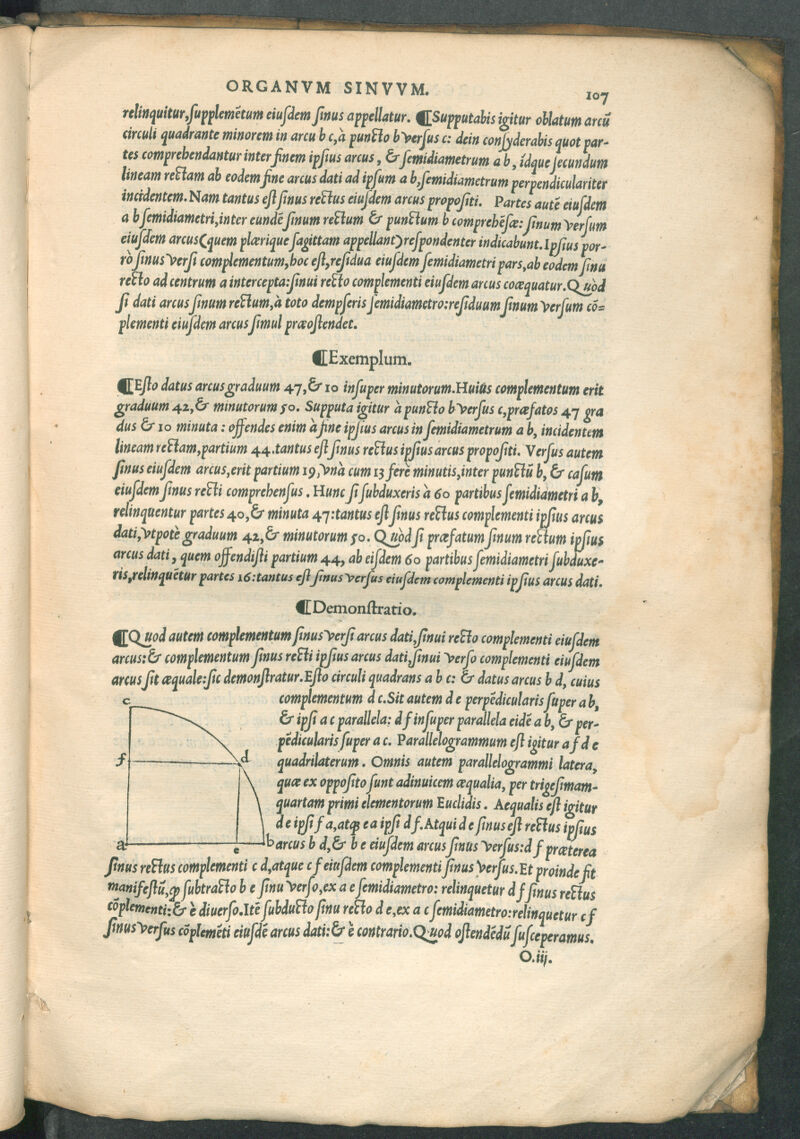 ORGANVM SINVVM.
107
relinquitur,ſupplemẽtum eiuſdem ſinus appellatur. ¶Supputabis igitur oblatum arcũ
circuli quadrante minorem in arcu b c,à puncto b verſus c: dein conſyderabis quot par-
tes comprehendantur inter finem ipſius arcus, & ſemidiametrum a b, idque ſecundum
lineam rectam ab eodem fine arcus dati ad ipſum a b,ſemidiametrum perpendiculariter
incidentem. Nam tantus eſt ſinus rectus eiuſdem arcus propoſiti. Partes autẽ eiuſdem
a b ſemidiametri,inter eundẽ ſinum rectum & punctum b comprehẽſæ: ſinum verſum
eiuſdem arcus(quem plærique ſagittam appellant)reſpondenter indicabunt.Ipſius por-
rò ſinus verſi complementum,hoc eſt,reſidua eiuſdem ſemidiametri pars,ab eodem ſinu
recto ad centrum a intercepta:ſinui recto complementi eiuſdem arcus coæquatur.Quòd
ſi dati arcus ſinum rectum,à toto dempſeris ſemidiametro:reſiduum ſinum verſum cõ=
plementi eiuſdem arcus ſimul præoſtendet.
¶Exemplum.
¶Eſto datus arcus graduum 47,& 10 inſuper minutorum.Huius complementum erit
graduum 42,& minutorum 50. Supputa igitur à puncto b verſus c,præfatos 47 gra
dus & 10 minuta : offendes enim à fine ipſius arcus in ſemidiametrum a b, incidentem
lineam rectam,partium 44.tantus eſt ſinus rectus ipſius arcus propoſiti. Verſus autem
ſinus eiuſdem arcus,erit partium 19,vnà cum 13 ferè minutis,inter punctũ b, & caſum
eiuſdem ſinus recti comprehenſus. Hunc ſi ſubduxeris à 60 partibus ſemidiametri a b,
relinquentur partes 40,& minuta 47:tantus eſt ſinus rectus complementi ipſius arcus
dati,vtpotè graduum 42,& minutorum 50. Quòd ſi præfatum ſinum rectum ipſius
arcus dati, quem offendiſti partium 44, ab eiſdem 60 partibus ſemidiametri ſubduxe-
ris,relinquẽtur partes 16:tantus eſt ſinus verſus eiuſdem complementi ipſius arcus dati.
¶Demonſtratio.
¶Quod autem complementum ſinus verſi arcus dati,ſinui recto complementi eiuſdem
arcus:& complementum ſinus recti ipſius arcus dati,ſinui verſo complementi eiuſdem
arcus ſit æquale:ſic demonſtratur.Eſto circuli quadrans a b c: & datus arcus b d, cuius
complementum d c.Sit autem d e perpẽdicularis ſuper a b,
& ipſi a c parallela: d f inſuper parallela eidẽ a b, & per-
pẽdicularis ſuper a c. Parallelogrammum eſt igitur a f d e
quadrilaterum. Omnis autem parallelogrammi latera,
quæ ex oppoſito ſunt adinuicem æqualia, per trigeſimam-
quartam primi elementorum Euclidis. Aequalis eſt igitur
d e ipſi f a,atqꝫ e a ipſi d f.Atqui d e ſinus eſt rectus ipſius
arcus b d,& b e eiuſdem arcus ſinus verſus:d f præterea
c
f
d
a
e
b
ſinus rectus complementi c d,atque c f eiuſdem complementi ſinus verſus.Et proinde fit
manifeſtũ,ꝙ ſubtracto b e ſinu verſo,ex a e ſemidiametro: relinquetur d f ſinus rectus
cõplementi:& è diuerſo.Itẽ ſubducto ſinu recto d e,ex a c ſemidiametro:relinquetur c f
ſinus verſus cõplemẽti eiuſdẽ arcus dati:& è contrario.Quod oſtendẽdũ ſuſceperamus.
O.iij.